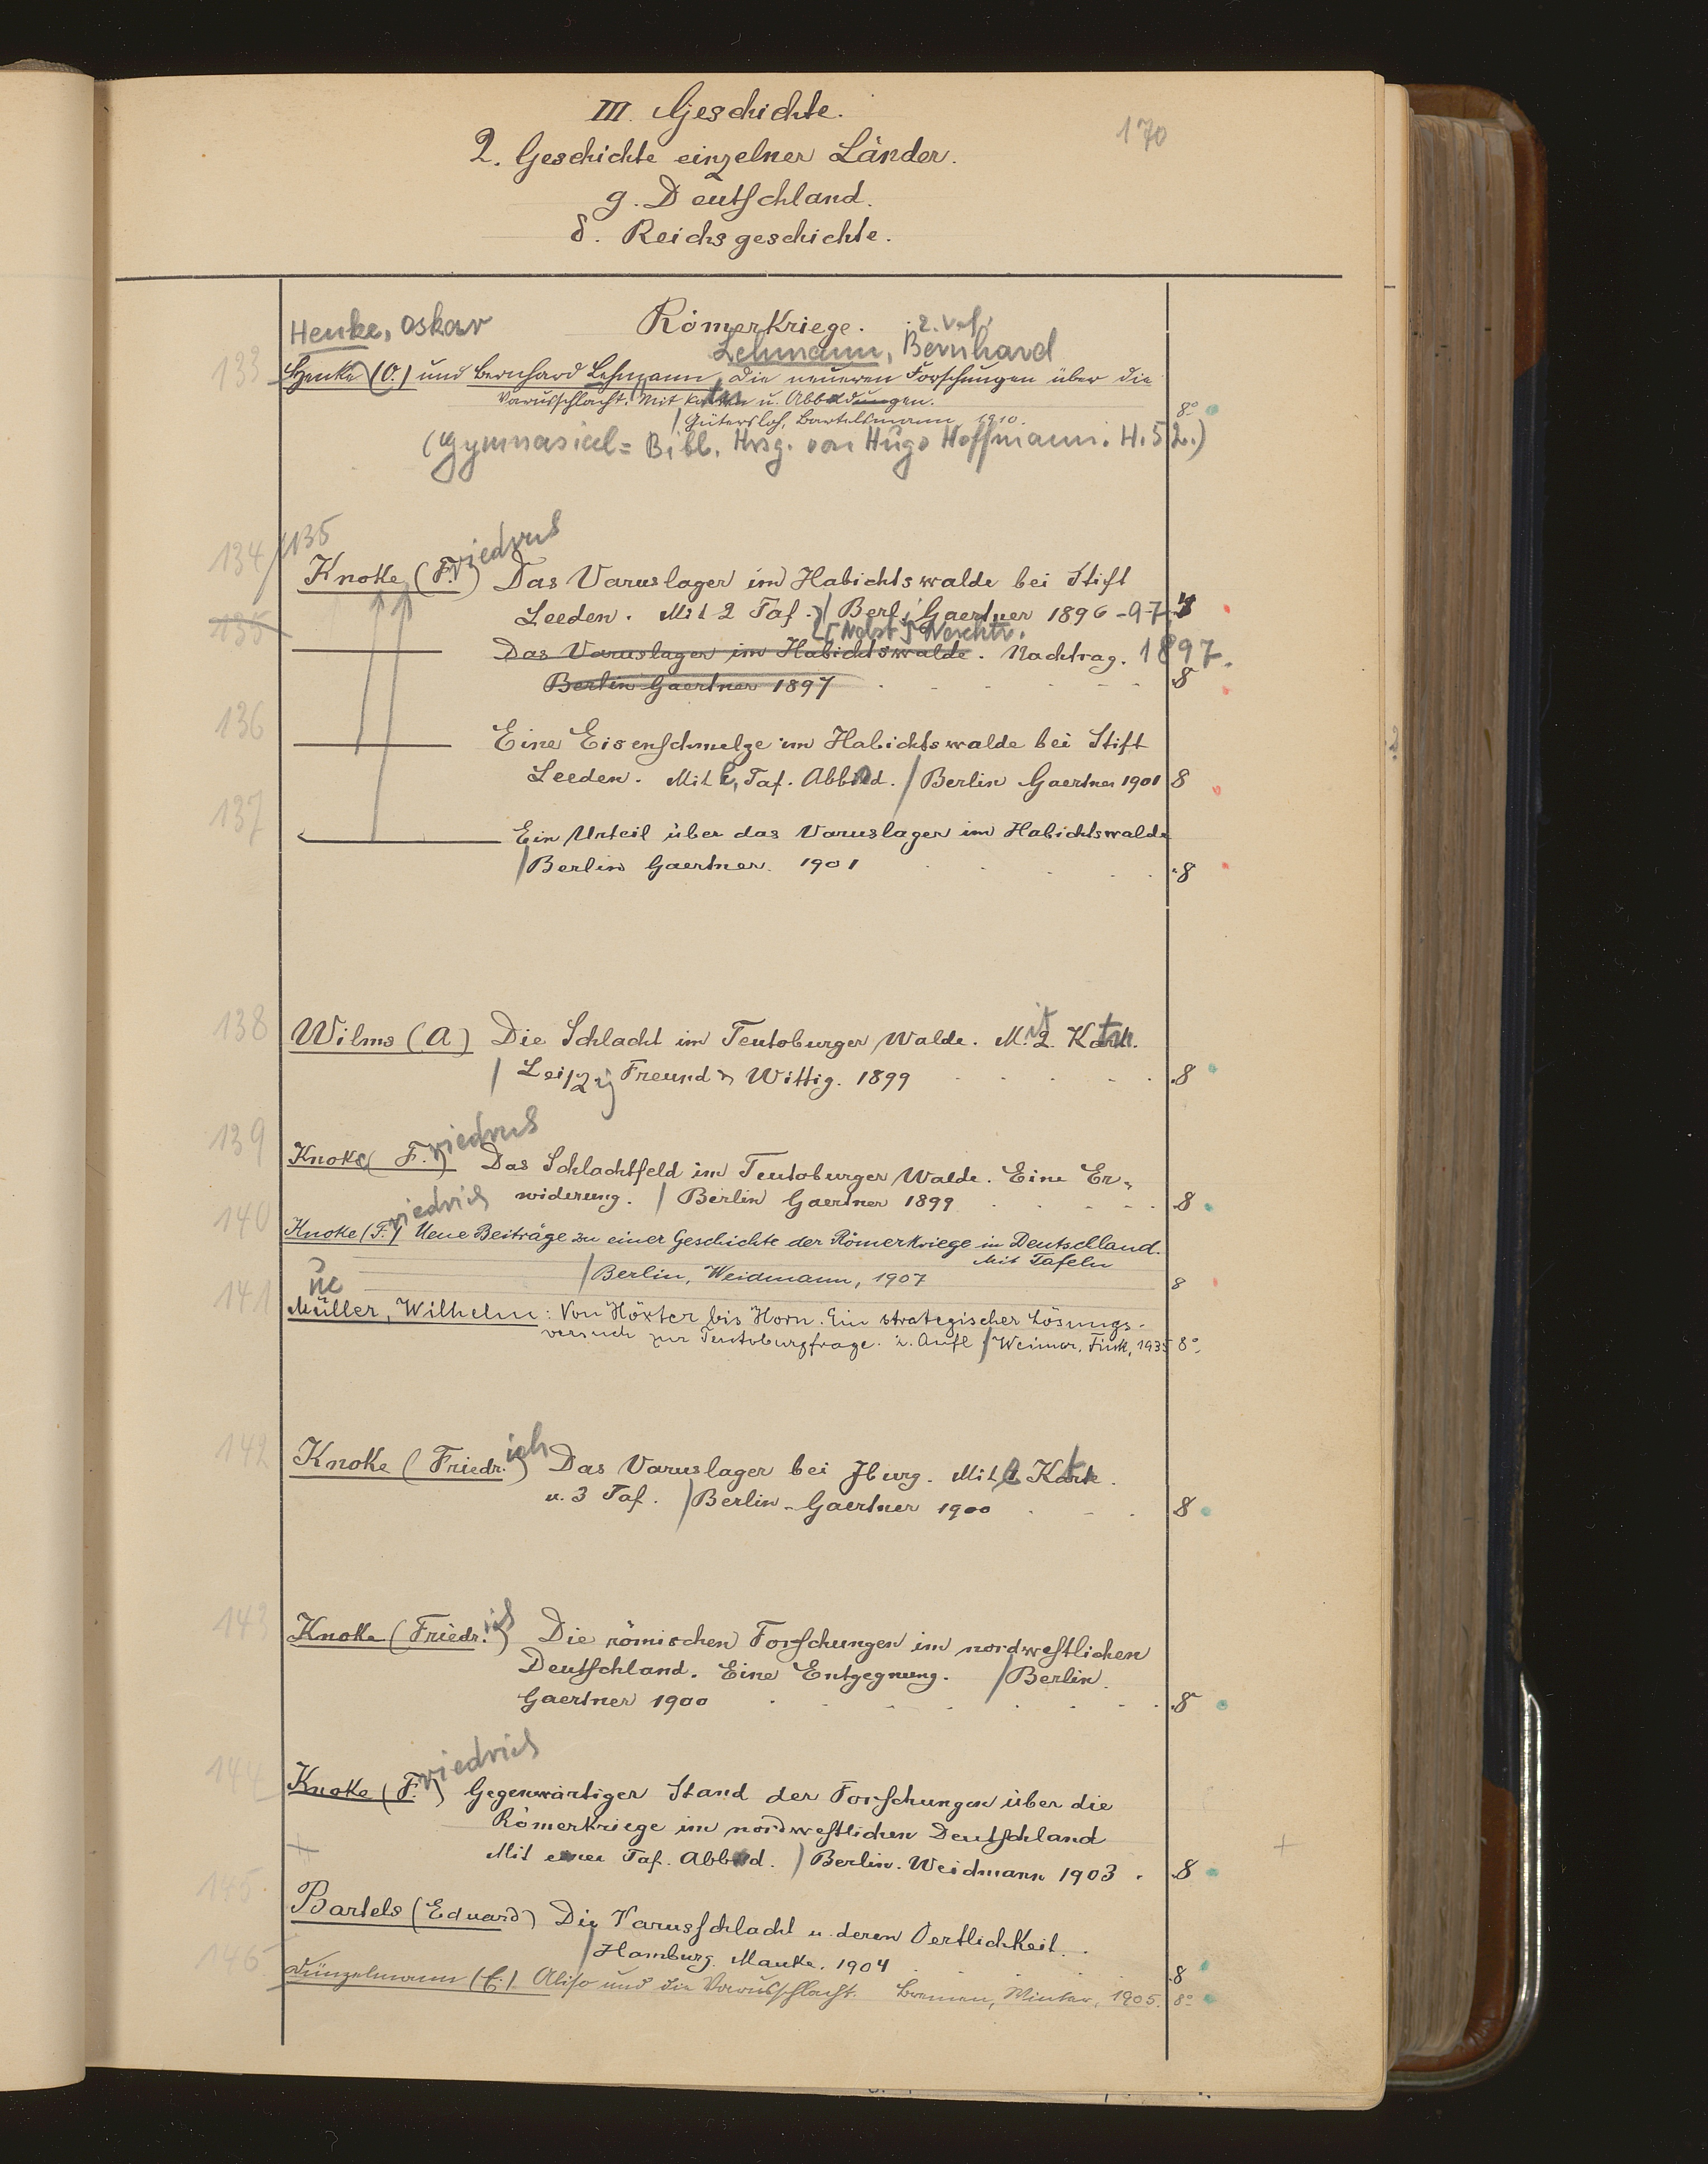 III. Geschichte.
170
2. Geschichte einzelner Länder.
g. Deutschland.
δ. Reichsgeschichte.
Henke, Oskar
Römerkriege.
2. Verf.
Lehmann, Bernhard
133 Henke (O.) und Bernhard Lehmann, Die neueren Forschungen über die
Varusschlacht. Mit Karten u. Abbildungen.
/ Gütersloh, Bertelsmann 1910. 8°
(Gymnasial=Bibl. Hrsg. von Hugo Hoffmann. H. 52.)
134/135
Knoke (Friedrich) Das Varuslager im Habichtswalde bei Stift
Leeden. Mit 2 Taf. / Berl. Gaertner 1896-97. 8
[Nebst] Nachtr.
135 Das Varuslager im Habichtswalde. Nachtrag. 1897.
Berlin Gaertner 1897 8
136 Eine Eisenschmelze im Habichtswalde bei Stift
Leeden. Mit Taf. Abbild. / Berlin Gaertner 1901 8
137 Ein Urteil über das Varuslager im Habichtswalde
/ Berlin Gaertner. 1901 8
138 Wilms (A) Die Schlacht im Teutoburger Walde. Mit 2 Ktn.
/ Leipzig Freund & Wittig. 1899 8
139 Knoke (Friedrich) Das Schlachtfeld im Teutoburger Walde. Eine Er-
widerung. / Berlin Gaertner 1899 8
140 Knoke (Friedrich) Neue Beiträge zu einer Geschichte der Römerkriege in Deutschland.
Mit Tafeln
/ Berlin, Weidmann, 1907 8
141 Müller, Wilhelm: Von Höxter bis Horn. Ein strategischer Lösungs-
versuch zur Teutoburgfrage. 2. Aufl / Weimar, Fink, 1935 8°
142 Knoke (Friedrich) Das Varuslager bei Jburg. Mit 1 Karte
u. 3 Taf. / Berlin. Gaertner 1900 8
143 Knoke (Friedrich) Die römischen Forschungen im nordwestlichen
Deutschland. Eine Entgegnung. / Berlin
Gaertner 1900 8
144 Knoke (Friedrich) Gegenwärtiger Stand der Forschungen über die
Römerkriege im nordwestlichen Deutschland
Mit einer Taf. Abbild. / Berlin. Weidmann 1903 8
145 Bartels (Eduard) Die Varusschlacht u. deren Oertlichkeit.
/ Hamburg. Mauke. 1904 8
146 Dünzelmann (E.) Aliso und die Varusschlacht. Bremen, Winter, 1905. 8°